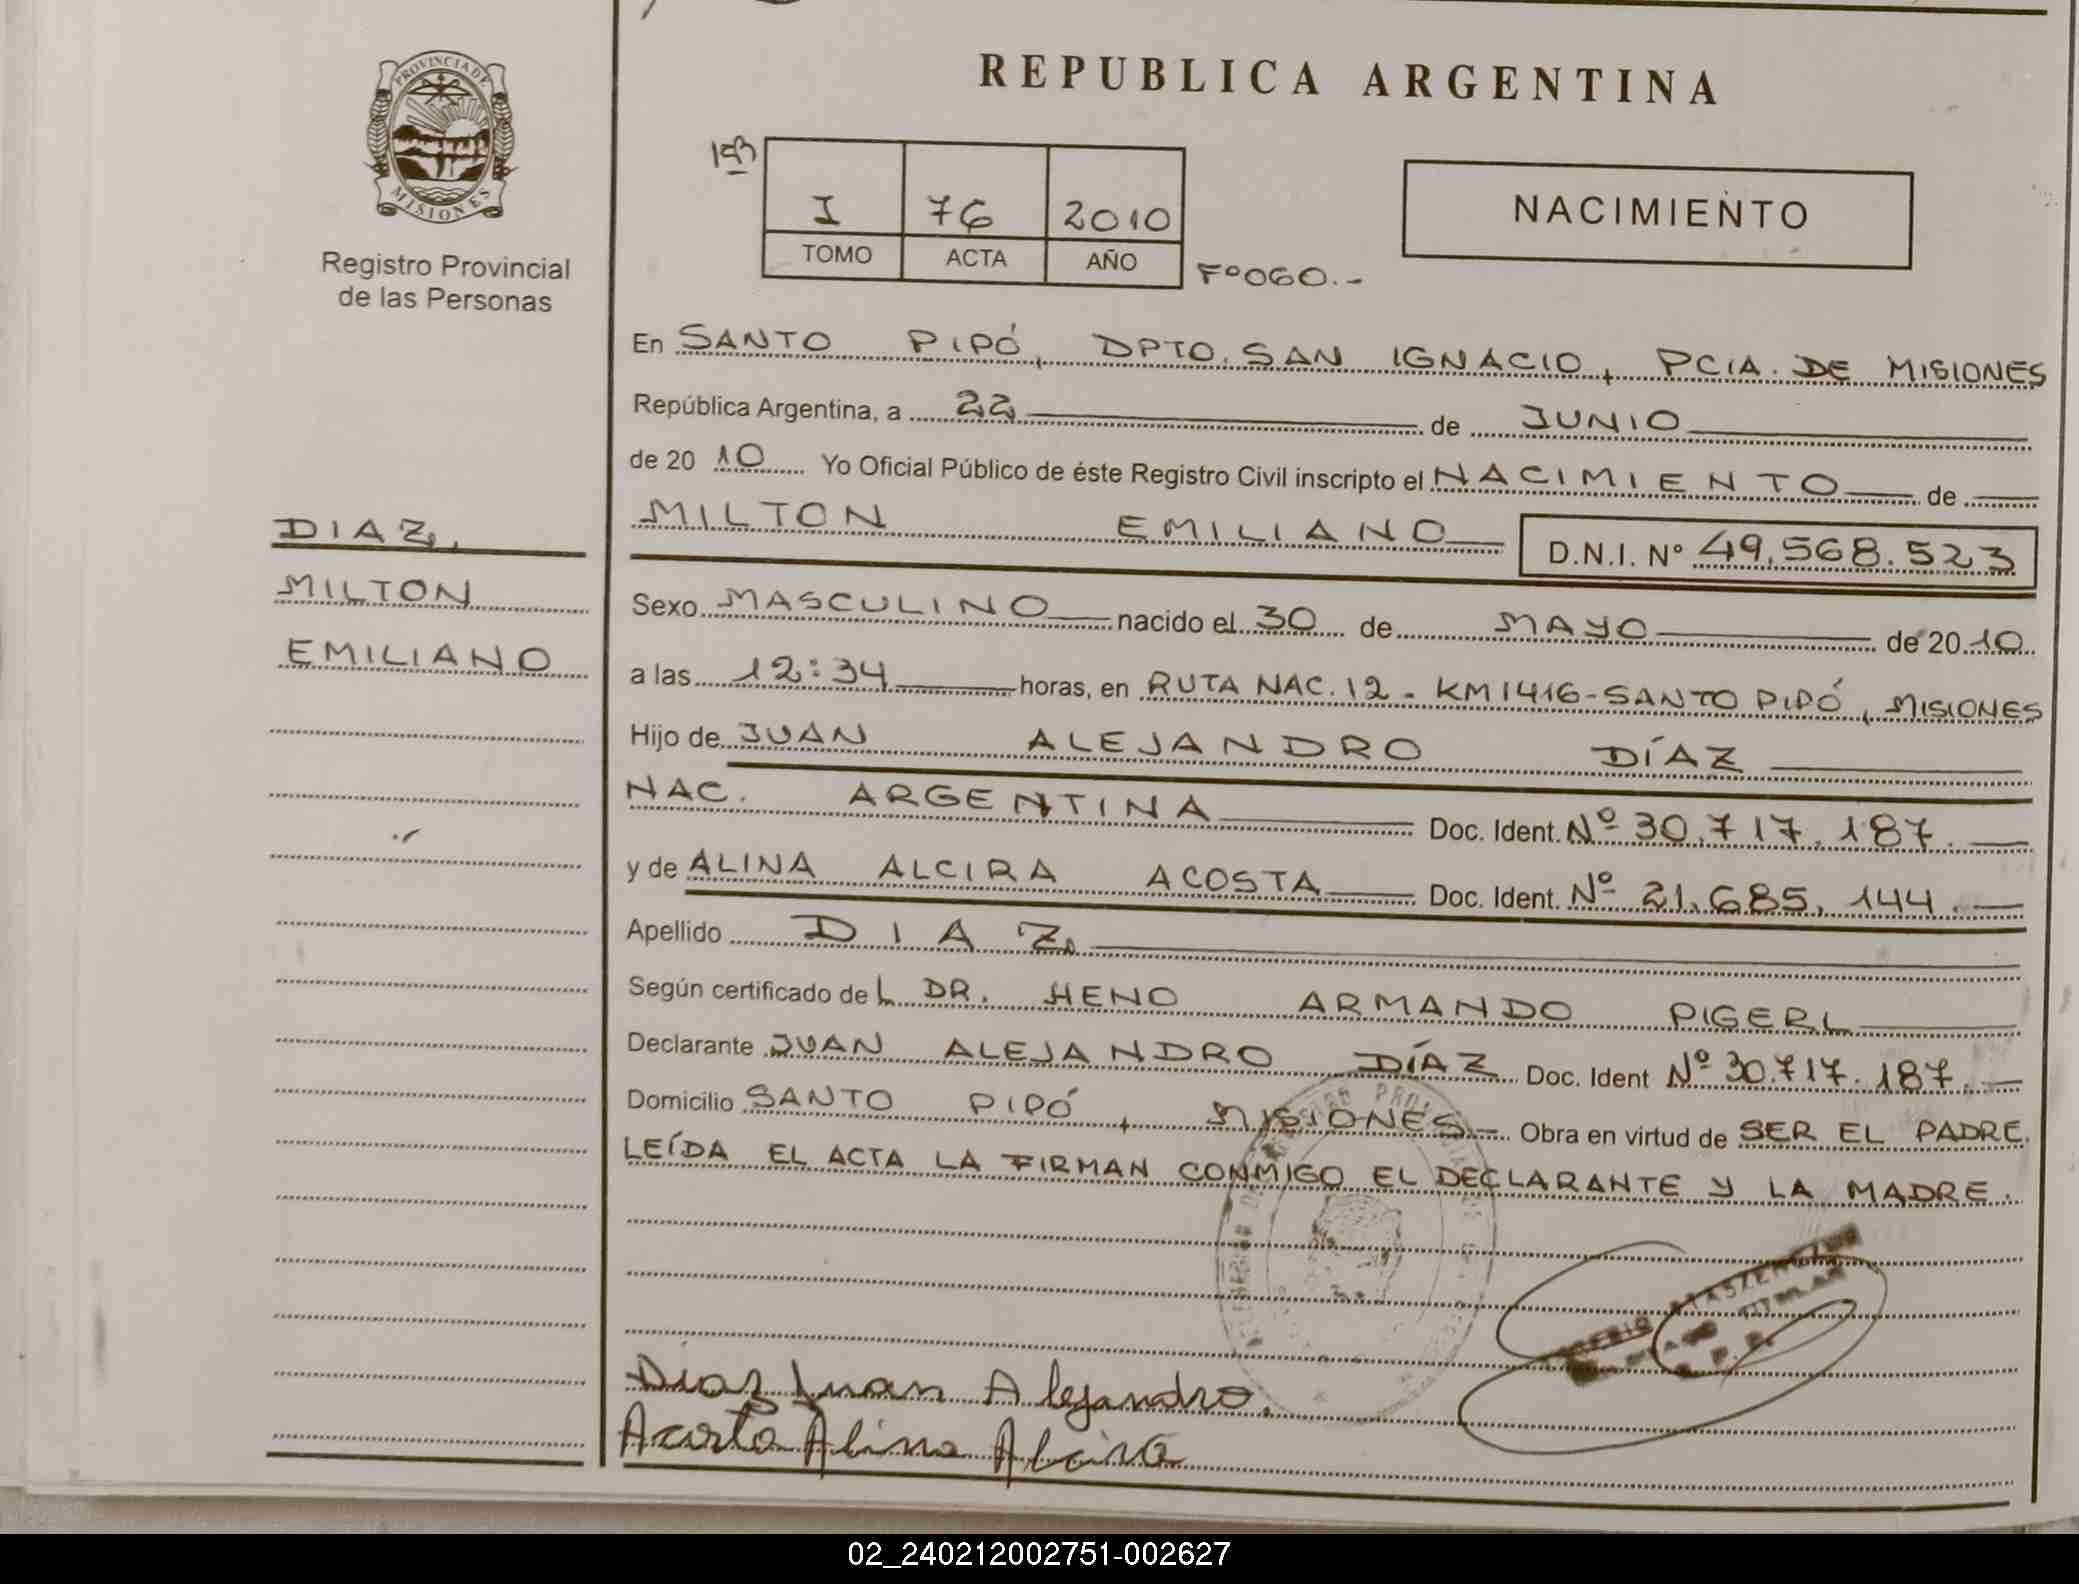 REPUBLICA ARGENTINA
PROVINCIA DE
MISIONES
Registro Provincial
de las Personas
I 76 2010
TOMO ACTA AÑO
Fº060.-
NACIMIENTO
En SANTO PIPÓ, DPTO. SAN IGNACIO, PCIA. DE MISIONES
República Argentina, a 22 de JUNIO
de 2010 Yo Oficial Público de éste Registro Civil inscripto el NACIMIENTO de
MILTON EMILIANO D.N.I. Nº 49.568.523
DIAZ,
MILTON
EMILIANO
Sexo MASCULINO nacido el 30 de MAYO de 2010
a las 12:34 horas, en RUTA NAC. 12 - KM1416-SANTO PIPÓ, MISIONES
Hijo de JUAN ALEJANDRO DÍAZ
NAC. ARGENTINA Doc. Ident. Nº 30.717.187.
y de ALINA ALCIRA ACOSTA Doc. Ident. Nº 21.685.144.
Apellido DIAZ
Según certificado del DR. HENO ARMANDO PIGERL
Declarante JUAN ALEJANDRO DÍAZ Doc. Ident Nº 30.717.187.
Domicilio SANTO PIPÓ, MISIONES.- Obra en virtud de SER EL PADRE.
LEÍDA EL ACTA LA FIRMAN CONMIGO EL DECLARANTE Y LA MADRE.
Diaz Juan Alejandro.
Acosta Alina Alcira
02_240212002751-002627